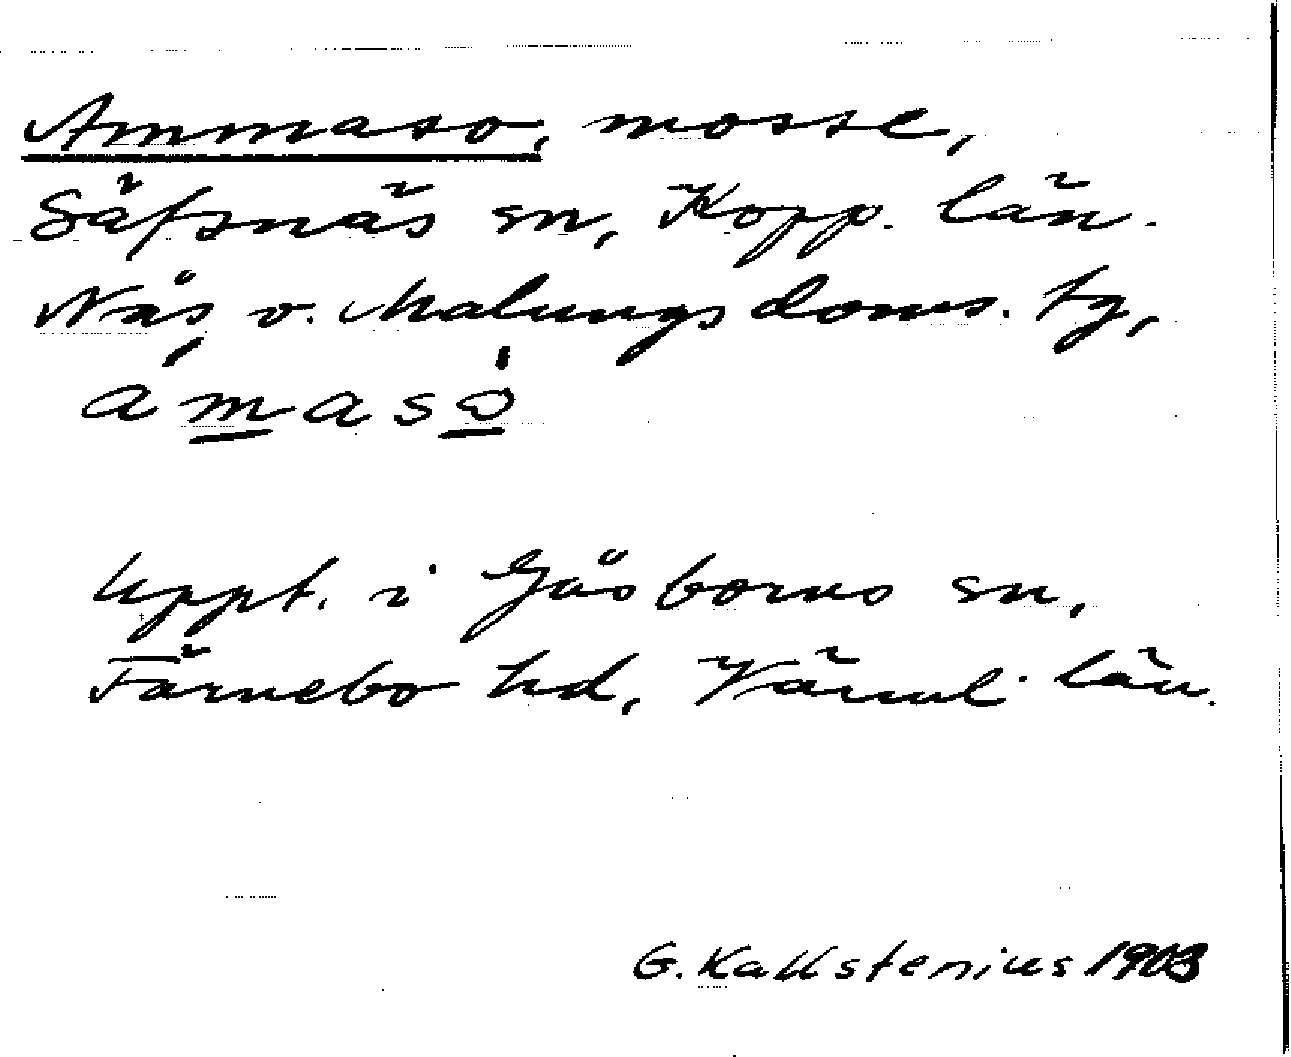 Ammaso, mosse,
Säfsnäs sn, Kopp. län.
Näs o. Malungs doms. tg,
amasò
Uppt. i Gåsborns sn,
Färnebo hd, Värml. län.
G. Kallstenius 1903